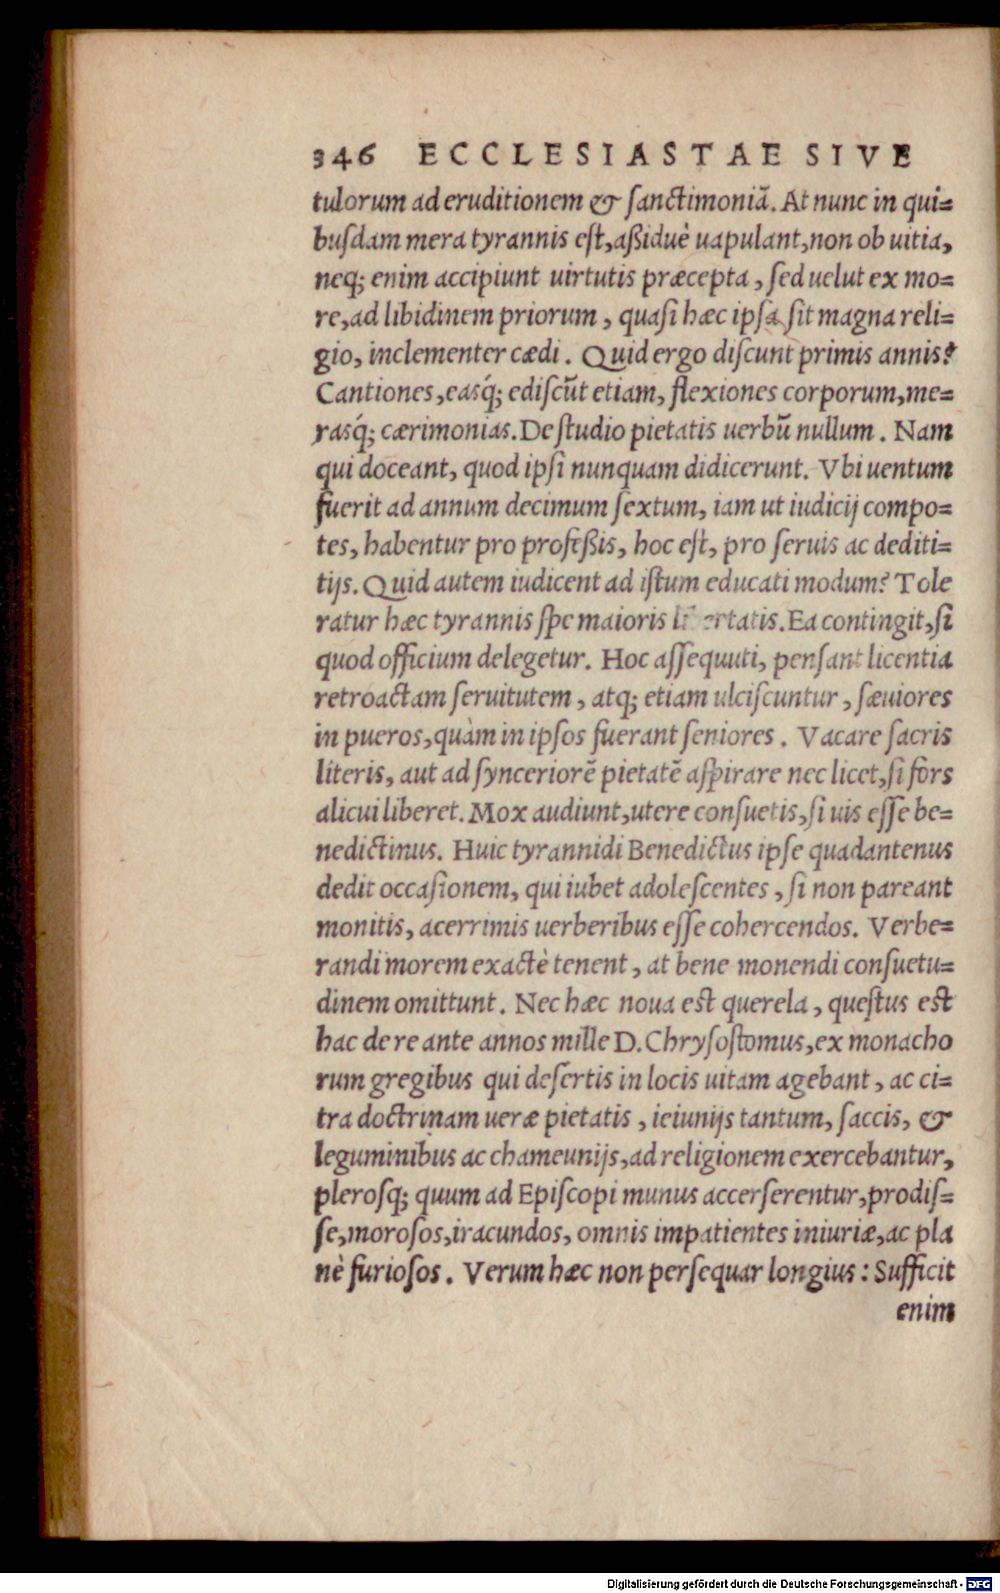 346 ECCLESIASTAE SIVE
tulorum ad eruditionem & ſanctimoniã. At nunc in qui=
buſdam mera tyrannis eſt, aßiduè uapulant, non ob uitia,
neq; enim accipiunt uirtutis præcepta, ſed uelut ex mo=
re, ad libidinem priorum, quaſi hæc ipſa ſit magna reli=
gio, inclementer cædi. Quid ergo diſcunt primis annis?
Cantiones, easq́; ediſcũt etiam, flexiones corporum, me=
rasq́; cærimonias. De ſtudio pietatis uerbũ nullum. Nam
qui doceant, quod ipſi nunquam didicerunt. Vbi uentum
fuerit ad annum decimum ſextum, iam ut iudicij compo=
tes, habentur pro profeßis, hoc eſt, pro ſeruis ac dediti=
tijs. Quid autem iudicent ad iſtum educati modum? Tole
ratur hæc tyrannis ſpe maioris libertatis. Ea contingit, ſi
quod officium delegetur. Hoc aſſequuti, penſant licentia
retroactam ſeruitutem, atq; etiam ulciſcuntur, ſæuiores
in pueros, quàm in ipſos fuerant ſeniores. Vacare ſacris
literis, aut ad ſynceriorẽ pietatẽ aſpirare nec licet, ſi fors
alicui liberet. Mox audiunt, utere conſuetis, ſi uis eſſe be=
nedictinus. Huic tyrannidi Benedictus ipſe quadantenus
dedit occaſionem, qui iubet adoleſcentes, ſi non pareant
monitis, acerrimis uerberibus eſſe cohercendos. Verbe=
randi morem exactè tenent, at bene monendi conſuetu=
dinem omittunt. Nec hæc noua est querela, queſtus est
hac de re ante annos mille D. Chryſoſtomus, ex monacho
rum gregibus qui deſertis in locis uitam agebant, ac ci=
tra doctrinam ueræ pietatis, ieiunijs tantum, ſaccis, &
leguminibus ac chameunijs, ad religionem exercebantur,
pleroſq; quum ad Epiſcopi munus accerſerentur, prodiſ=
ſe, moroſos, iracundos, omnis impatientes iniuriæ, ac pla
nè furioſos. Verum hæc non perſequar longius: Sufficit
enim
Digitalisierung gefördert durch die Deutsche Forschungsgemeinschaft - DFG